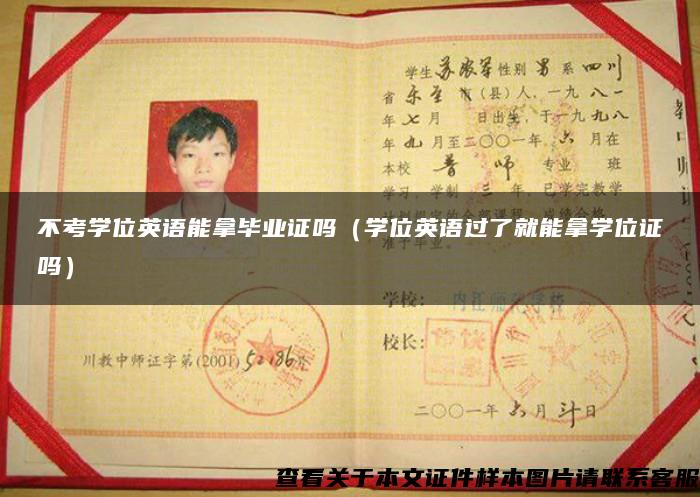 学生 苏 军 性别 男 系 四川
省 乐至 市（县）人，一九 八一
年 七 月 日出生，于一九 九八
年 九 月至二〇〇一年 六 月在
本校 普 师 专业 班
学习，学制 三 年，已学完教学
不考学位英语能拿毕业证吗（学位英语过了就能拿学位证
吗）
准予毕业。
学校：内江师范学校
校长：
川教中师证字第(2001) 52186号
二〇〇一年 六 月 日
查看关于本文证件样本图片请联系客服